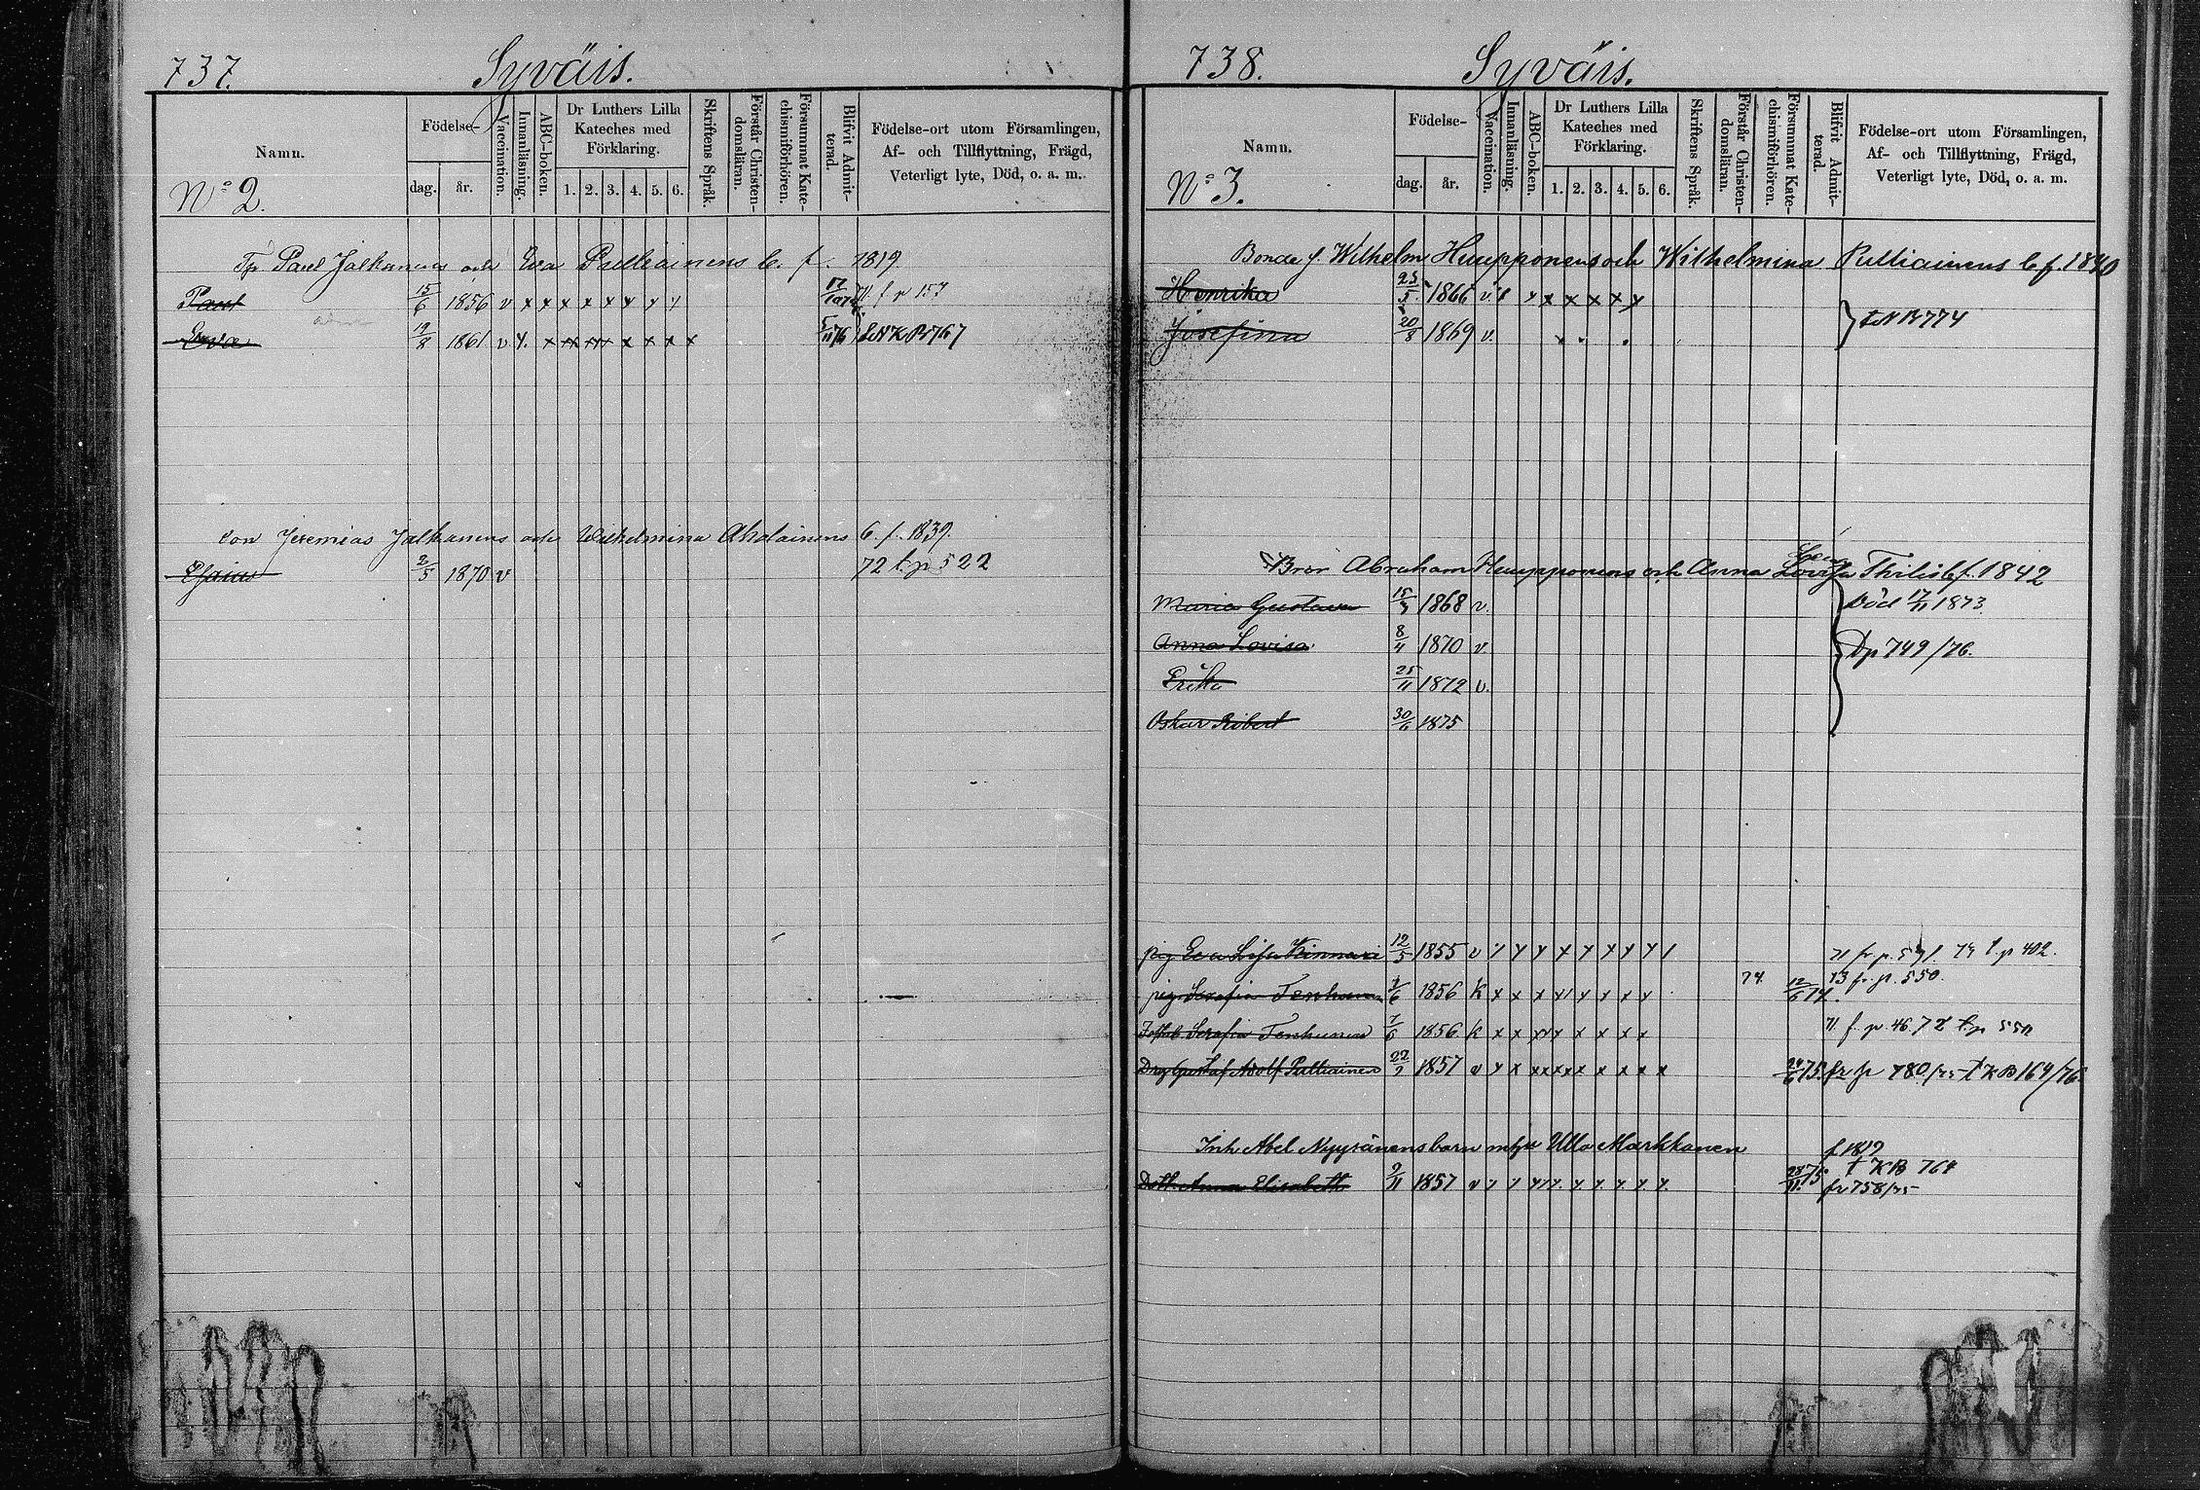 737. Syväis.
Namn.
Födelse-
dag. år.
Vaccination.
Innanläsning.
ABC-boken.
Dr Luthers Lilla Kateches med Förklaring.
1. 2. 3. 4. 5. 6.
Skriftens Språk.
Förstår Christendomsläran.
Försummat Katechismiförhören.
Blifvit Admitterad.
Födelse-ort utom Församlingen,
Af- och Tillflyttning, Frägd,
Veterligt lyte, Död, o. a. m.
No 2.
Paul Jalkanens och Eva Pulliainens b. f. 1819.
Paul 15/6 1856 v x x x x x x x x 71 f p 157
Eva 19/8 1861 v x x x x x x x
son Jeremias Jalkanens och Wilhelmina Aholainens b. f. 1839.
Esaias 2/5 1870 v 72 t p 522
738. Syväis.
Namn.
Födelse-
dag. år.
Vaccination.
Innanläsning.
ABC-boken.
Dr Luthers Lilla Kateches med Förklaring.
1. 2. 3. 4. 5. 6.
Skriftens Språk.
Förstår Christendomsläran.
Försummat Katechismiförhören.
Blifvit Admitterad.
Födelse-ort utom Församlingen,
Af- och Tillflyttning, Frägd,
Veterligt lyte, Död, o. a. m.
No 3.
Bonde f. Wilhelm Huupponens och Wilhelmina Pulliainens b. f. 1840
Henrika 25/5 1866 v. x x x x x x
Josefina 20/8 1869 v.
Bror Abraham Huupponens och Anna Lovisa Thilis b. f. 1842
Maria Gustava 1868 v. Död 17/11 1873.
Anna Lovisa 8/4 1870 v
Erika 25/11 1872 v. p 749/76.
Oskar Robert 30/6 1875
pig. Eva Lisa Kinnari 12/5 1855 v 71 fr p. 74 t. p 402.
pig. Serafia Tenhunen 7/6 1856 k x x x x x x x x 74. 12/6 74. 73 fr. p. 550.
Serafia Tenhunen 7/6 1856. k x x x x x x x 71. f. p. 46. 72 t. p 550
Drg Gustaf Adolf Pulliainen 1857 v x x x x x x x x x 24/6 75. fr p 780/75 t K B 169/76
Inh. Abel Nyyränens barn m hu Ulla Markkanen f. 1819
Dott. Anna Elisabeth 9/11 1857 v 28/11 75. t K B 764
fr 758/75